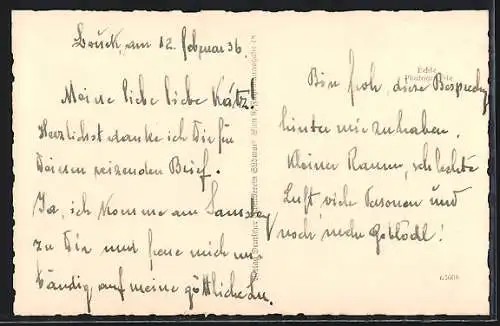 Bruck, am 12. Februar 36.
Meine liebe liebe Kätz.
Herzlichst danke ich Dir für
Deinen reizenden Brief.
Ja, ich komme am Samstag
zu Dir und freue mich un
bändig auf meine göttliche
Echte
Photographie
Bin froh, diese
hinter mir zu haben.
Kleiner Raum, schlechte
Luft viele Personen und
noch mehr Geblödl!